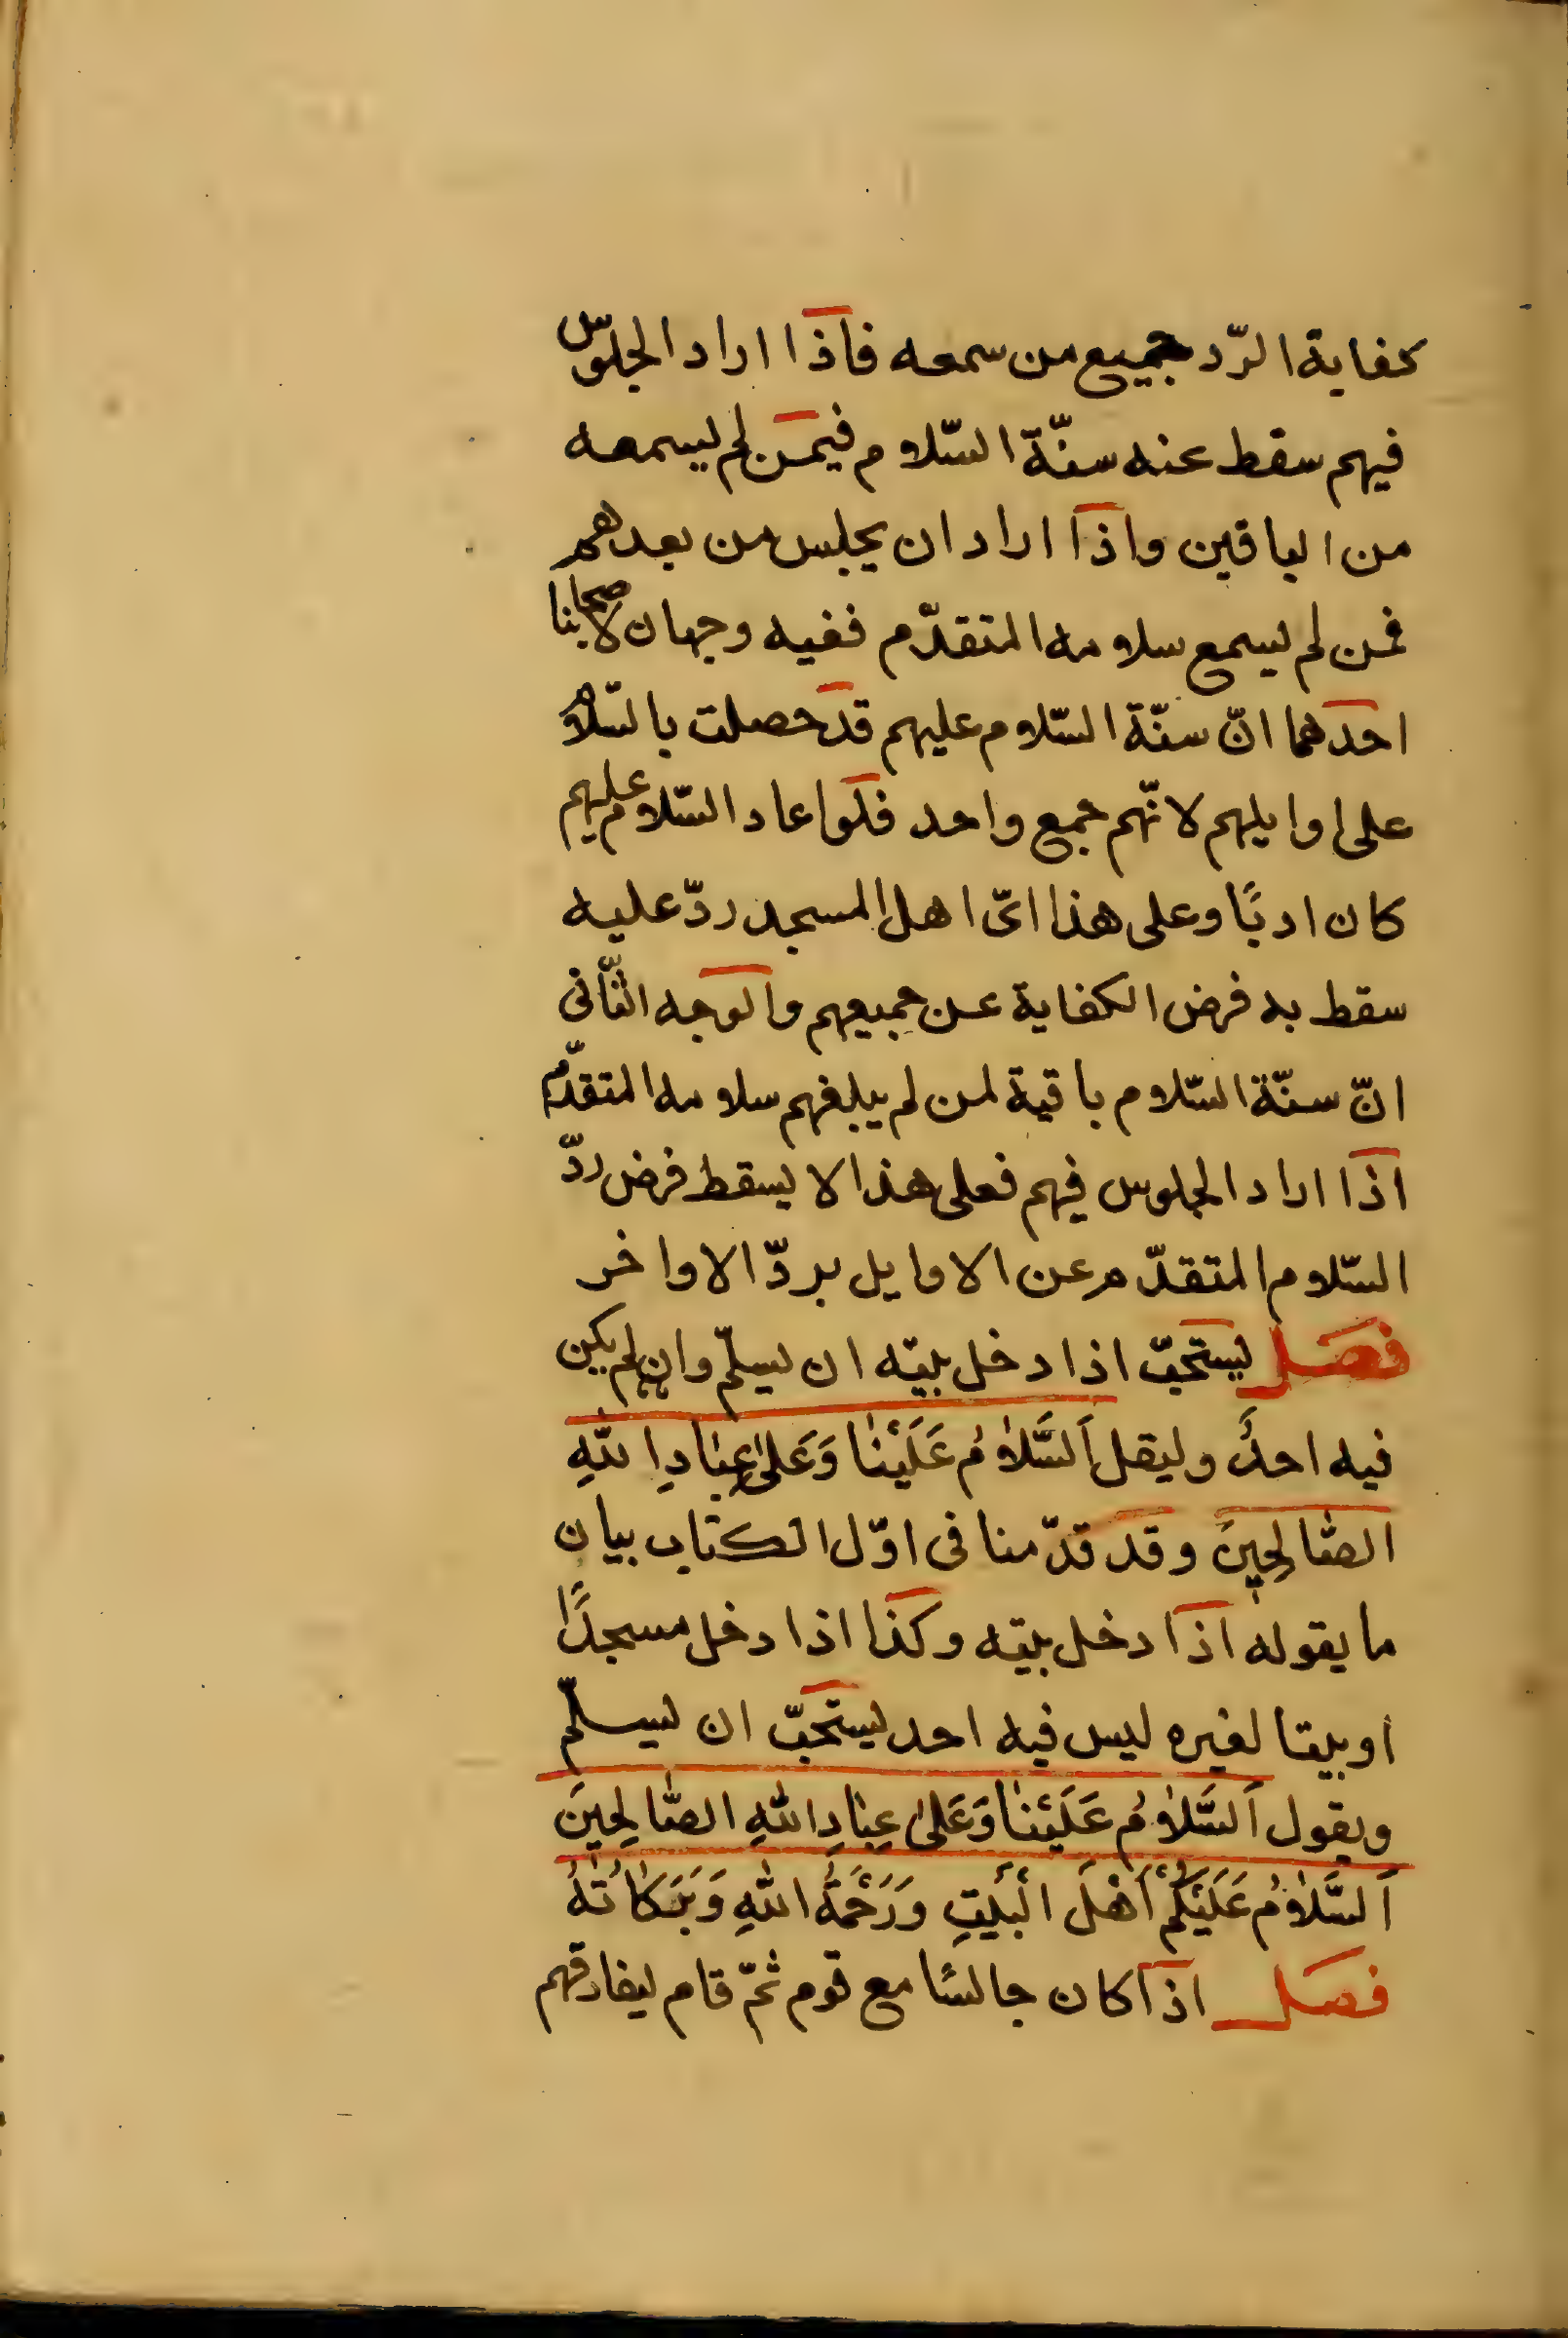 كفاية الرّد جميع من سمعه فاذا اراد الجلوس
فيهم سقط عنه سنّة السّلام فيمن لم يسمعه
من الباقين واذا اراد ان يجلس من بعدهم
فمن لم يسمع سلامه المتقدّم ففيه وجهان لاصحابنا
احدهما انّ سنّة السّلام عليهم قد حصلت بالسّلام
على اوايلهم لانّهم جمع واحد فلو اعاد السّلام عليهم
كان ادبًا وعلى هذا اىّ اهل المسجد ردّ عليه
سقط به فرض الكفاية عن جميعهم والوجه الثّانى
انّ سنّة السّلام باقية لمن لم يبلغهم سلامه المتقدّم
اذا اراد الجلوس فيهم فعلى هذا لا يسقط فرض ردّ
السّلام المتقدّم عن الاوايل بردّ الاواخر
فصل يستحبّ اذا دخل بيته ان يسلّم وان لم يكن
فيه احدٌ وليقل اَلسَّلَامُ عَلَيْنَا وَعَلَى عِبَادِ اللهِ
الصَّالِحِينَ وقد قدّمنا فى اوّل الكتاب بيان
ما يقوله اذا دخل بيته وكذا اذا دخل مسجدًا
او بيتا لغيره ليس فيه احد يستحبّ ان يسلّم
ويقول اَلسَّلَامُ عَلَيْنَا وَعَلَى عِبَادِ اللهِ الصَّالِحِينَ
اَلسَّلَامُ عَلَيْكُمْ اَهْلَ الْبَيْتِ وَرَحْمَةُ اللهِ وَبَرَكَاتُهُ
فصل اذا كان جالسًا مع قوم ثمّ قام ليفارقهم